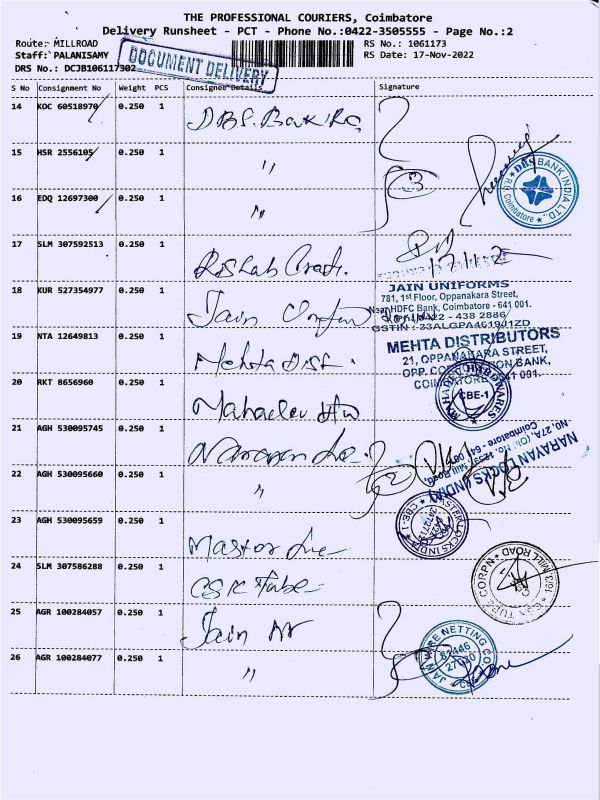 THE PROFESSIONAL COURIERS, Coimbatore
Delivery Runsheet - PCT - Phone No.:0422-3505555 - Page No.:2
Route: MILLROAD
RS No.: 1061173
Staff: PALANISAMY
RS Date: 17-Nov-2022
DRS No.: DCJB106117302
DOCUMENT DELIVERY
S No Consignment No Weight PCS Consignee Details Signature
14 KOC 60518970 0.250 1
15 HSR 2556105 0.250 1 "
16 EDQ 12697300 0.250 1 "
3
DBS BANK INDIA LTD.,
R.O. Coimbatore
17 SLM 307592513 0.250 1
18 KUR 527354977 0.250 1 Jain
JAIN UNIFORMS
781, 1st Floor, Oppanakara Street,
Near HDFC Bank, Coimbatore - 641 001.
0422 - 438 2886
19 NTA 12649813 0.250 1 Mehta Dist.
MEHTA DISTRIBUTORS
21, OPPANAKARA STREET,
BANK,
COIMBATORE - 641 001.
20 RKT 8656960 0.250 1 Mahadev
MAHADEV HARDWARES
CBE-1
21 AGH 530095745 0.250 1 Narayan
NARAYAN LOCKS (INDIA)
Coimbatore - 641 001.
22 AGH 530095660 0.250 1 "
2
23 AGH 530095659 0.250 1 Master
CBE-1
24 SLM 307586288 0.250 1 CSK Tube
MILL ROAD
25 AGR 100284057 0.250 1 Jain
26 AGR 100284077 0.250 1 "
JAIN WIRE NETTING CO.
82446
27030